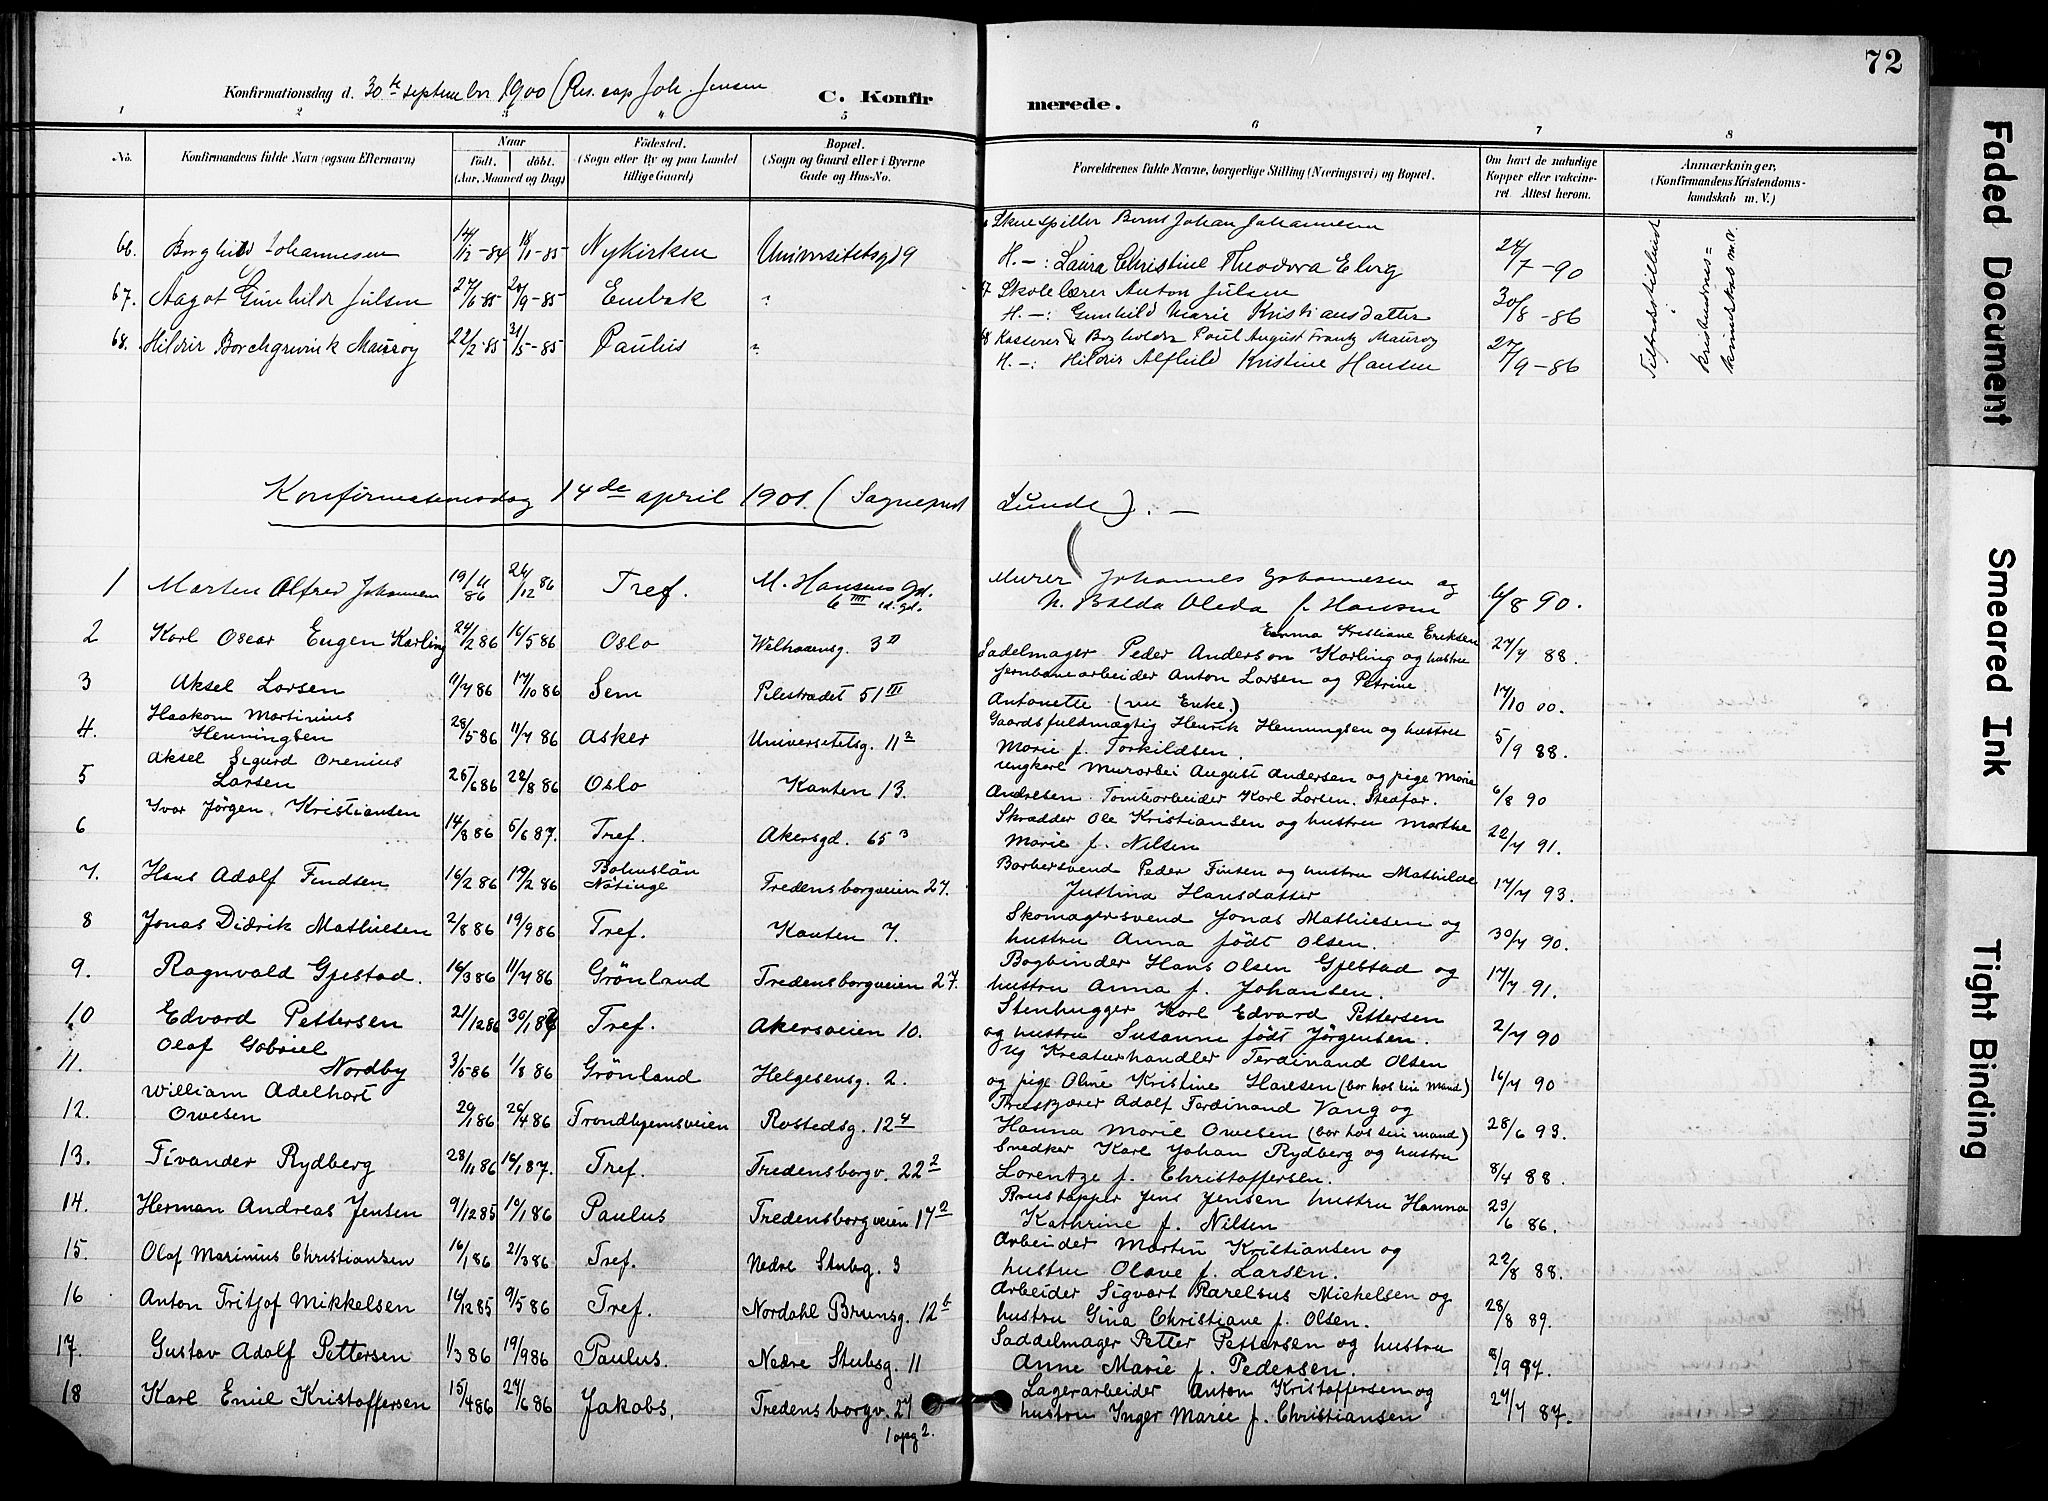 72
Konfirmationsdag d. 30te september 1900 (Res. cap. Joh. Jensen
C. Konfirmerede.
1 2 3 4 5 6 7 8
No.
Konfirmandens fulde Navn (ogsaa Efternavn)
Naar
födt. döbt.
(Aar, Maaned og Dag)
Födested.
(Sogn eller By og paa Landet
tillige Gaard)
Bopæl.
(Sogn og Gaard eller i Byerne
Gade og Hus-No.
Forældrenes fulde Navne, borgerlige Stilling (Næringsvei) og Bopæl.
Om havt de naturlige
Kopper eller vakcine-
ret Attest herom.
Anmærkninger.
(Konfirmandens Kristendoms-
kundskab m. V.)
66. Borghild Johannesen 14/12-84 18/1-85 Nykirken Universitetsgd 9
Skuespiller Bernt Johan Johannesen
H.-: Laura Christine Theodora Elvig 24/7-90
67. Aagot Gunhilde Julsen 27/6 85 20/9-85 Enebak "
Skolelærer Anton Julsen
H.-: Gunhild Marie Kristiansdatter 30/8-86
68. Hildur Borchgrevink Mauroy 22/2-85 31/5-85 Paulus "
68 Kasserer & Bogholder Paul August Frantz Mauroy
H.-: Hildur Alfhild Kristine Hansen 27/9-86
Tilfredsstillende
kristendoms=
kundskab m.v.
Konfirmationsdag 14de april 1901. (Sogneprest Lunde). -
1 Marten Alfred Johannesen 19/11 86 26/12 86 Tref. M. Hansens Gd.
6 IIII id. gd.
Murer Johannes Johannesen og
h. Balda Oleda f. Hansen 6/8 90.
2 Karl Oscar Eugen Karling 24/2 86 16/5 86 Oslo Welhavensg. 3 II
Emma Kristiane Eriksen
Sadelmager Peder Anderson Karling og hustru 27/7 88.
3 Aksel Larsen 11/7 86 17/10 86 Sem Pilestrædet 51 III
Jernbanearbeider Anton Larsen og Petrine
Antonette (nu Enke.) 17/10 00.
4. Haakon Martinius
Henningsen 28/5 86 11/7 86 Asker Universitetsg. 11 2
Gaardsfuldmægtig Henrik Henningsen og hustru
Marie f. Torkildsen. 5/9 88.
5 Aksel Sigurd Orenius
Larsen 25/6 86 22/8 86 Oslo Kanten 13.
Ungkarl Murarbei August Andersen og pige Marie
Andresen. Tomtearbeider Karl Larsen. Stedfar. 6/8 90
6 Ivar Jörgen Kristiansen 14/8 86 5/6 87. Tref. Akersgd. 65 3
Skrædder Ole Kristiansen og hustru Marthe
Marie f. Nilsen 22/7 91.
7. Hans Adolf Findsen 16/2 86 19/2 86 Bohuslän
Nötinge Fredensborgveien 27.
Barbersvend Peder Finsen og hustru Mathilde
Justina Hansdatter 17/7 93.
8 Jonas Didrik Mathiesen 2/8 86 19/9 86 Tref. Kanten 7.
Skomagersvend Jonas Mathiesen og
hustru Anna födt Olsen. 30/7 90.
9. Ragnvald Gjestad. 16/3 86 11/7 86 Grönland Fredensborgveien 27.
Bogbinder Hans Olsen Gjestad og
hustru Anna f. Johansen. 17/7 91.
10 Edvard Pettersen 21/12 86 30/1 87 Tref. Akersveien 10.
Stenhugger Karl Edvard Pettersen
og hustru Susanne födt Jörgensen. 2/7 90
11. Olaf Gabriel
Nordby 3/5-86 1/8 86 Grönland Helgesensg. 2.
Ug Kreaturhandler Ferdinand Olsen
og pige Oline Kristine Hansen (bor hos sin mand) 16/7 90
12. William Adelhart
Owesen 29/1 86 26/4 86 Trondhjemsveien Rostedsg. 12 4
Træskjærer Adolf Ferdinand Vang og
Hanna Marie Owesen (bor hos sin mand) 28/6 93.
13. Tivander Rydberg 28/11 86 16/1 87. Tref. Fredensborgv. 22 2
Snedker Karl Johan Rydberg og hustru
Lorentze f. Christoffersen. 8/4 88.
14. Herman Andreas Jensen 9/12 85 10/1 86 Paulus Fredensborgveien 17 2
Brustapper Jens Jensen hustru Hanna
Kathrine f. Nilsen 23/6 86.
15. Olaf Marinius Christiansen 16/1 86 21/3 86 Tref. Nedre Stubsg. 3
Arbeider Martin Kristiansen og
hustru Olave f. Larsen. 22/8 88.
16 Anton Fritjof Mikkelsen 16/12 85 9/5 86 Tref. Nordahl Brunsg. 12 b
Arbeider Sigvart Karelius Michelsen og
hustru Gina Christiane f. Olsen. 28/8 89.
17. Gustav Adolf Pettersen 1/3 86 19/9 86 Paulus. Nedre Stubsg. 11
Saddelmager Petter Pettersen og hustru
Anne Marie f. Pedersen. 8/9 97.
18 Karl Emil Kristoffersen 15/4 86 27/6 86 Jakobs. Fredensborgv. 27
1 opg 2.
Lagerarbeider Anton Kristoffersen og
hustru Inger Marie f. Christiansen 27/7 87.
Faded Document
Smeared Ink
Tight Binding